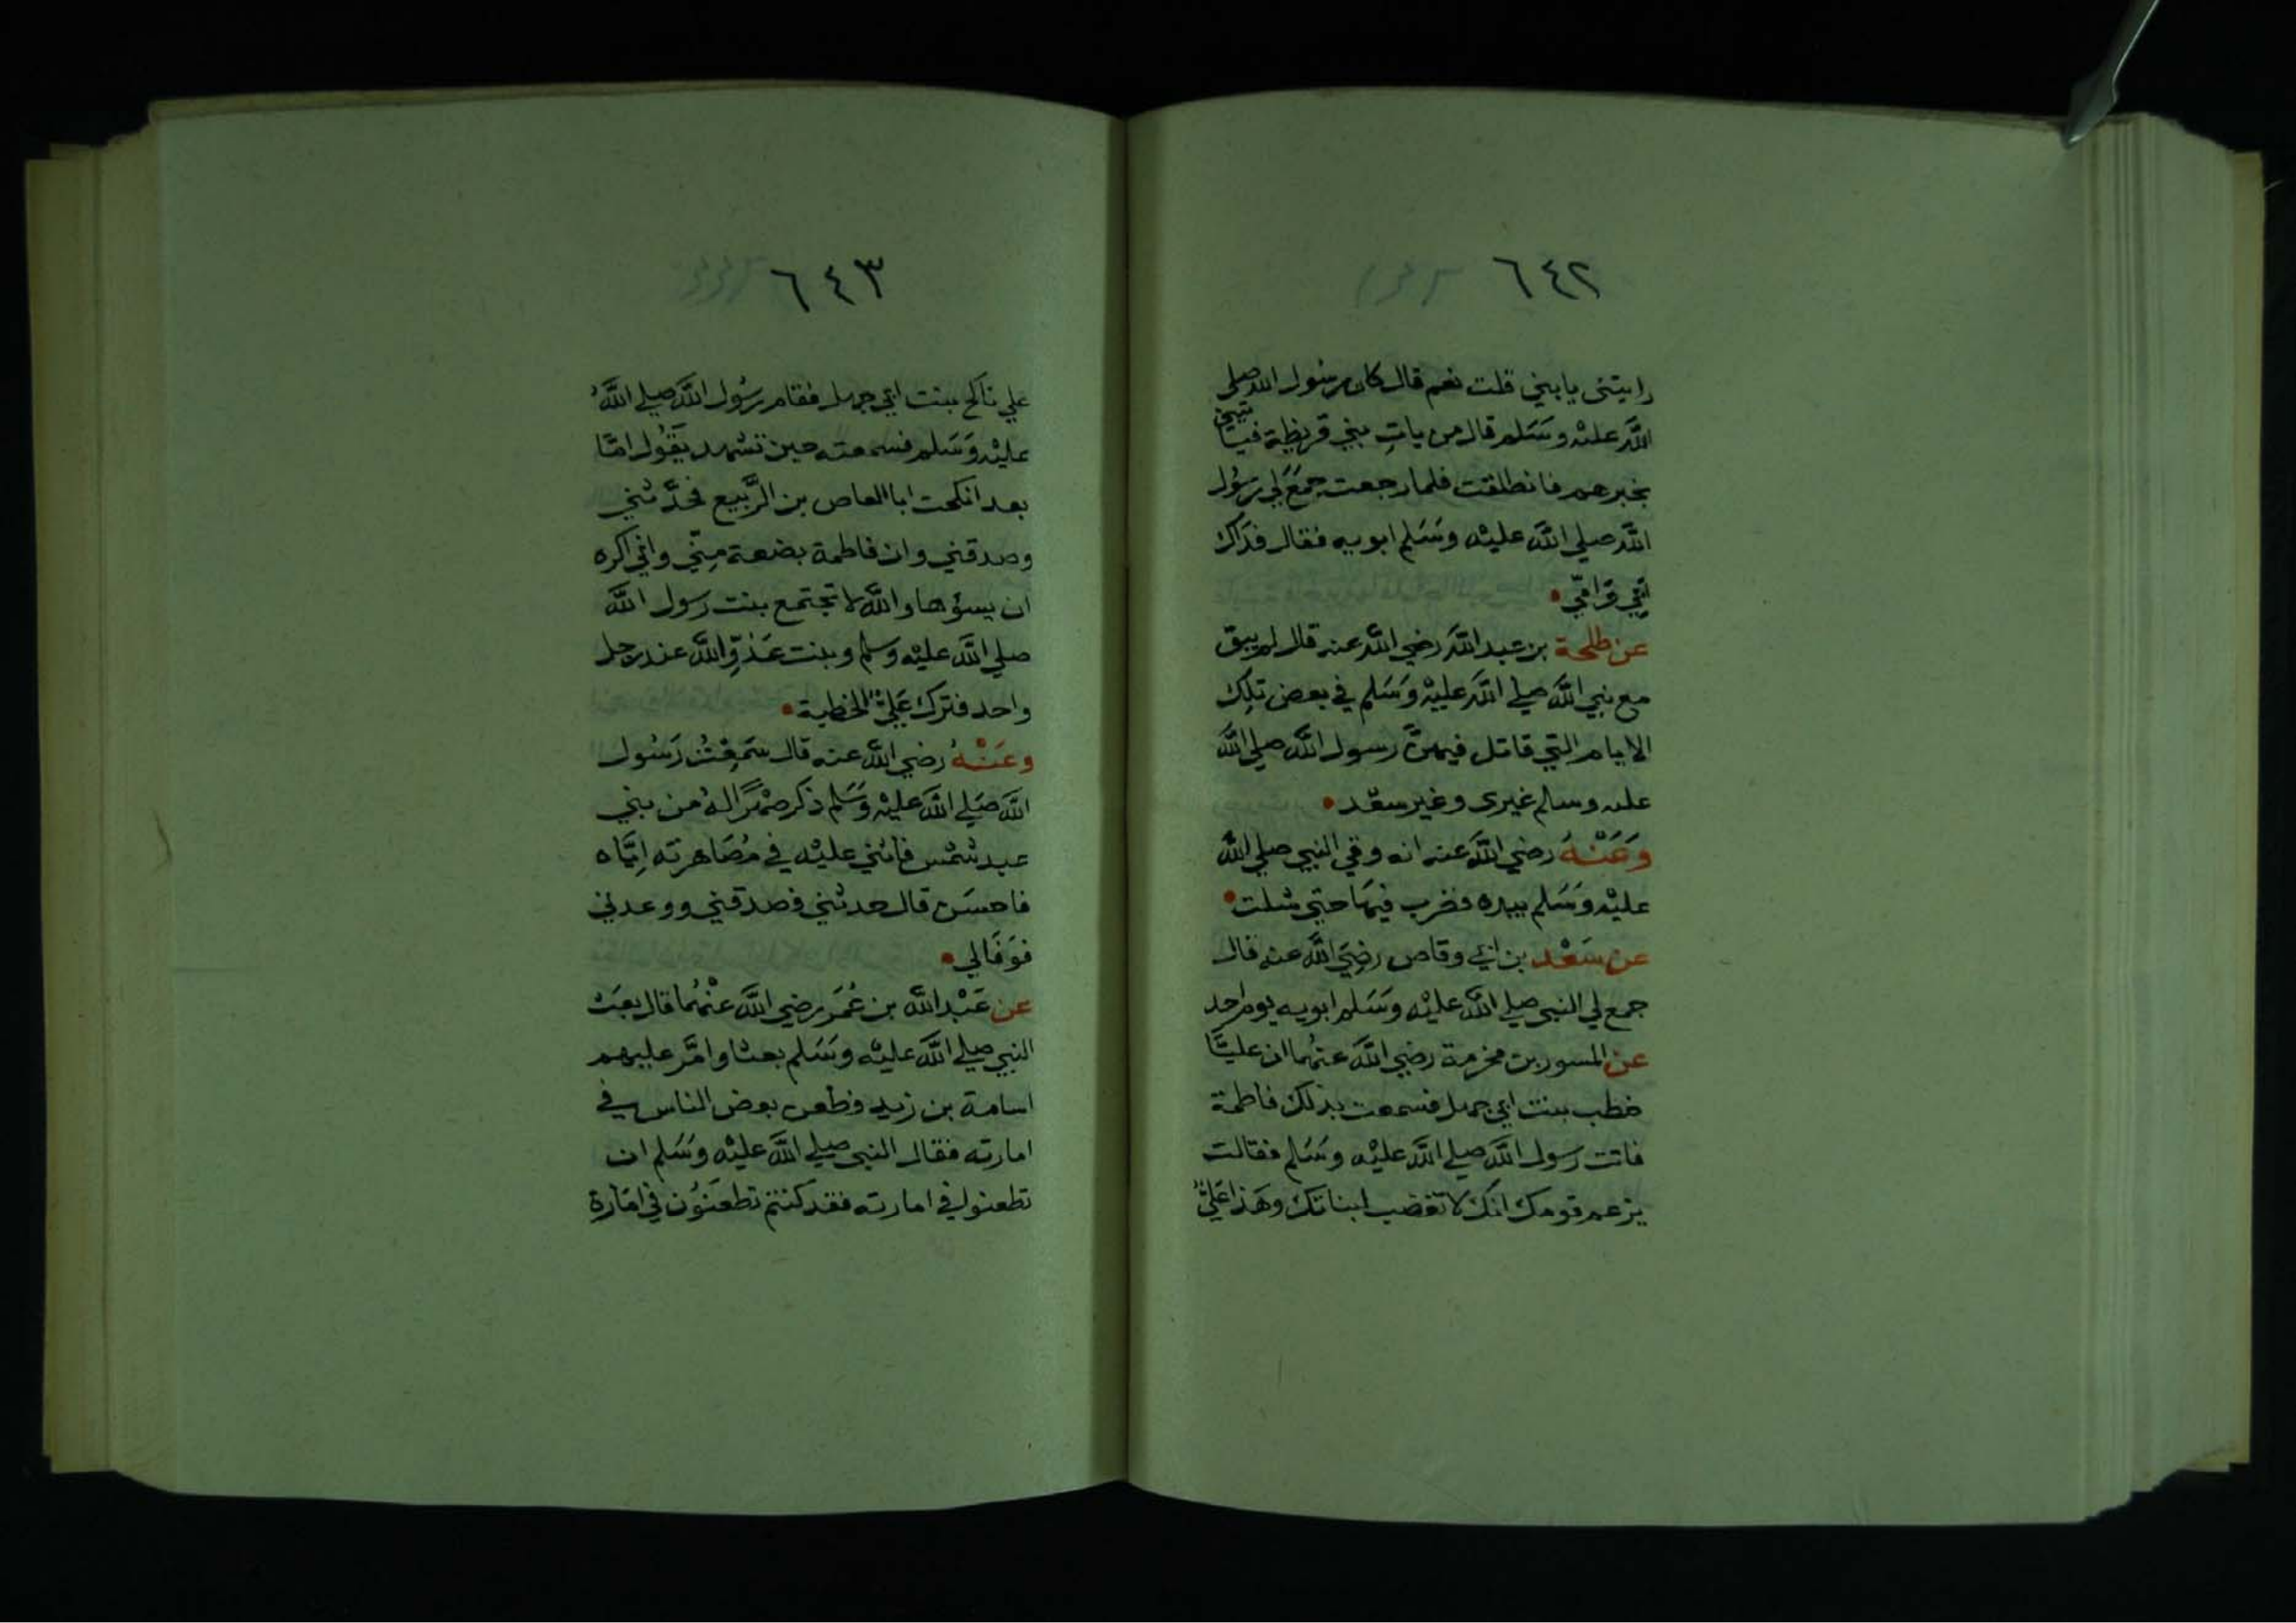 ٦٤٢
رايتنى يا بني قلت نعم قال كان رسول الله صلى
الله عليه وسلم قال من يات بني قريظة فياتيني
بخبرهم فانطلقت فلما رجعت جمع لي رسول
الله صلي الله عليه وسلم ابويه فقال فداك
ابي وامي
عن طلحة بن عبد الله رضي الله عنه قال لم يبق
مع نبي الله صلي الله عليه وسلم في بعض تلك
الايام التي قاتل فيهن رسول الله صلي الله
عليه وسلم غيرى وغير سعد
وعنه رضي الله عنه انه وقي النبي صلي الله
عليه وسلم بيده فضرب فيها حتي شلت
عن سعد بن ابي وقاص رضي الله عنه قال
جمع لي النبي صلي الله عليه وسلم ابويه يوم احد
عن المسور بن مخرمة رضي الله عنهما ان عليا
خطب بنت ابي جهل فسمعت بذلك فاطمة
فاتت رسول الله صلي الله عليه وسلم فقالت
يزعم قومك انك لا تغضب لبناتك وهذا علي
٦٤٣
علي ناكح بنت ابي جهل فقام رسول الله صلي الله
عليه وسلم فسمعته حين تشهد يقول اما
بعد انكحت ابا العاص بن الربيع فحدثني
وصدقني وان فاطمة بضعة مني واني اكره
ان يسؤها والله لا تجتمع بنت رسول الله
صلي الله عليه وسلم وبنت عدو الله عند رجل
واحد فترك علي الخطبة
وعنه رضي الله عنه قال سمعت رسول
الله صلي الله عليه وسلم ذكر صهرا له من بني
عبد شمس فاثني عليه في مصاهرته اياه
فاحسن قال حدثني فصدقني ووعدني
فوفالي
عن عبد الله بن عمر رضي الله عنهما قال بعث
النبي صلي الله عليه وسلم بعثا وامر عليهم
اسامة بن زيد فطعن بعض الناس في
امارته فقال النبي صلي الله عليه وسلم ان
تطعنوا في امارته فقد كنتم تطعنون في امارة